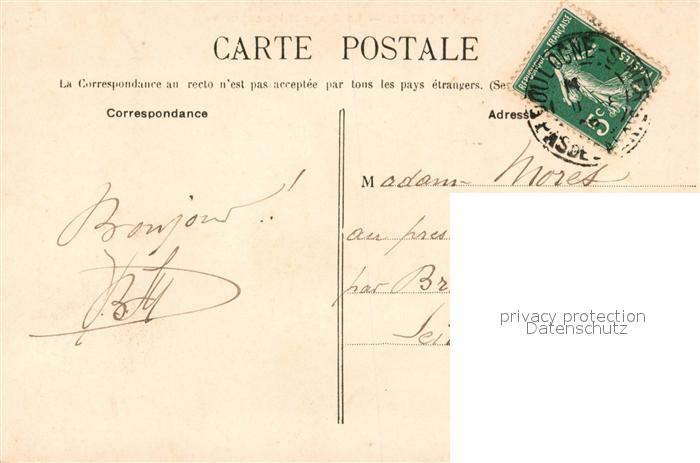 CARTE POSTALE
La Correspondance au recto n'est pas acceptée par tous les pays étrangers. (Se
Correspondance
Adress
REPUBLIQUE FRANÇAISE
POSTES
5c
BOULOGNE-S
PAS DE
Madam Mores
au pres
par Br
Sei
Bonjour!
privacy protection
Datenschutz